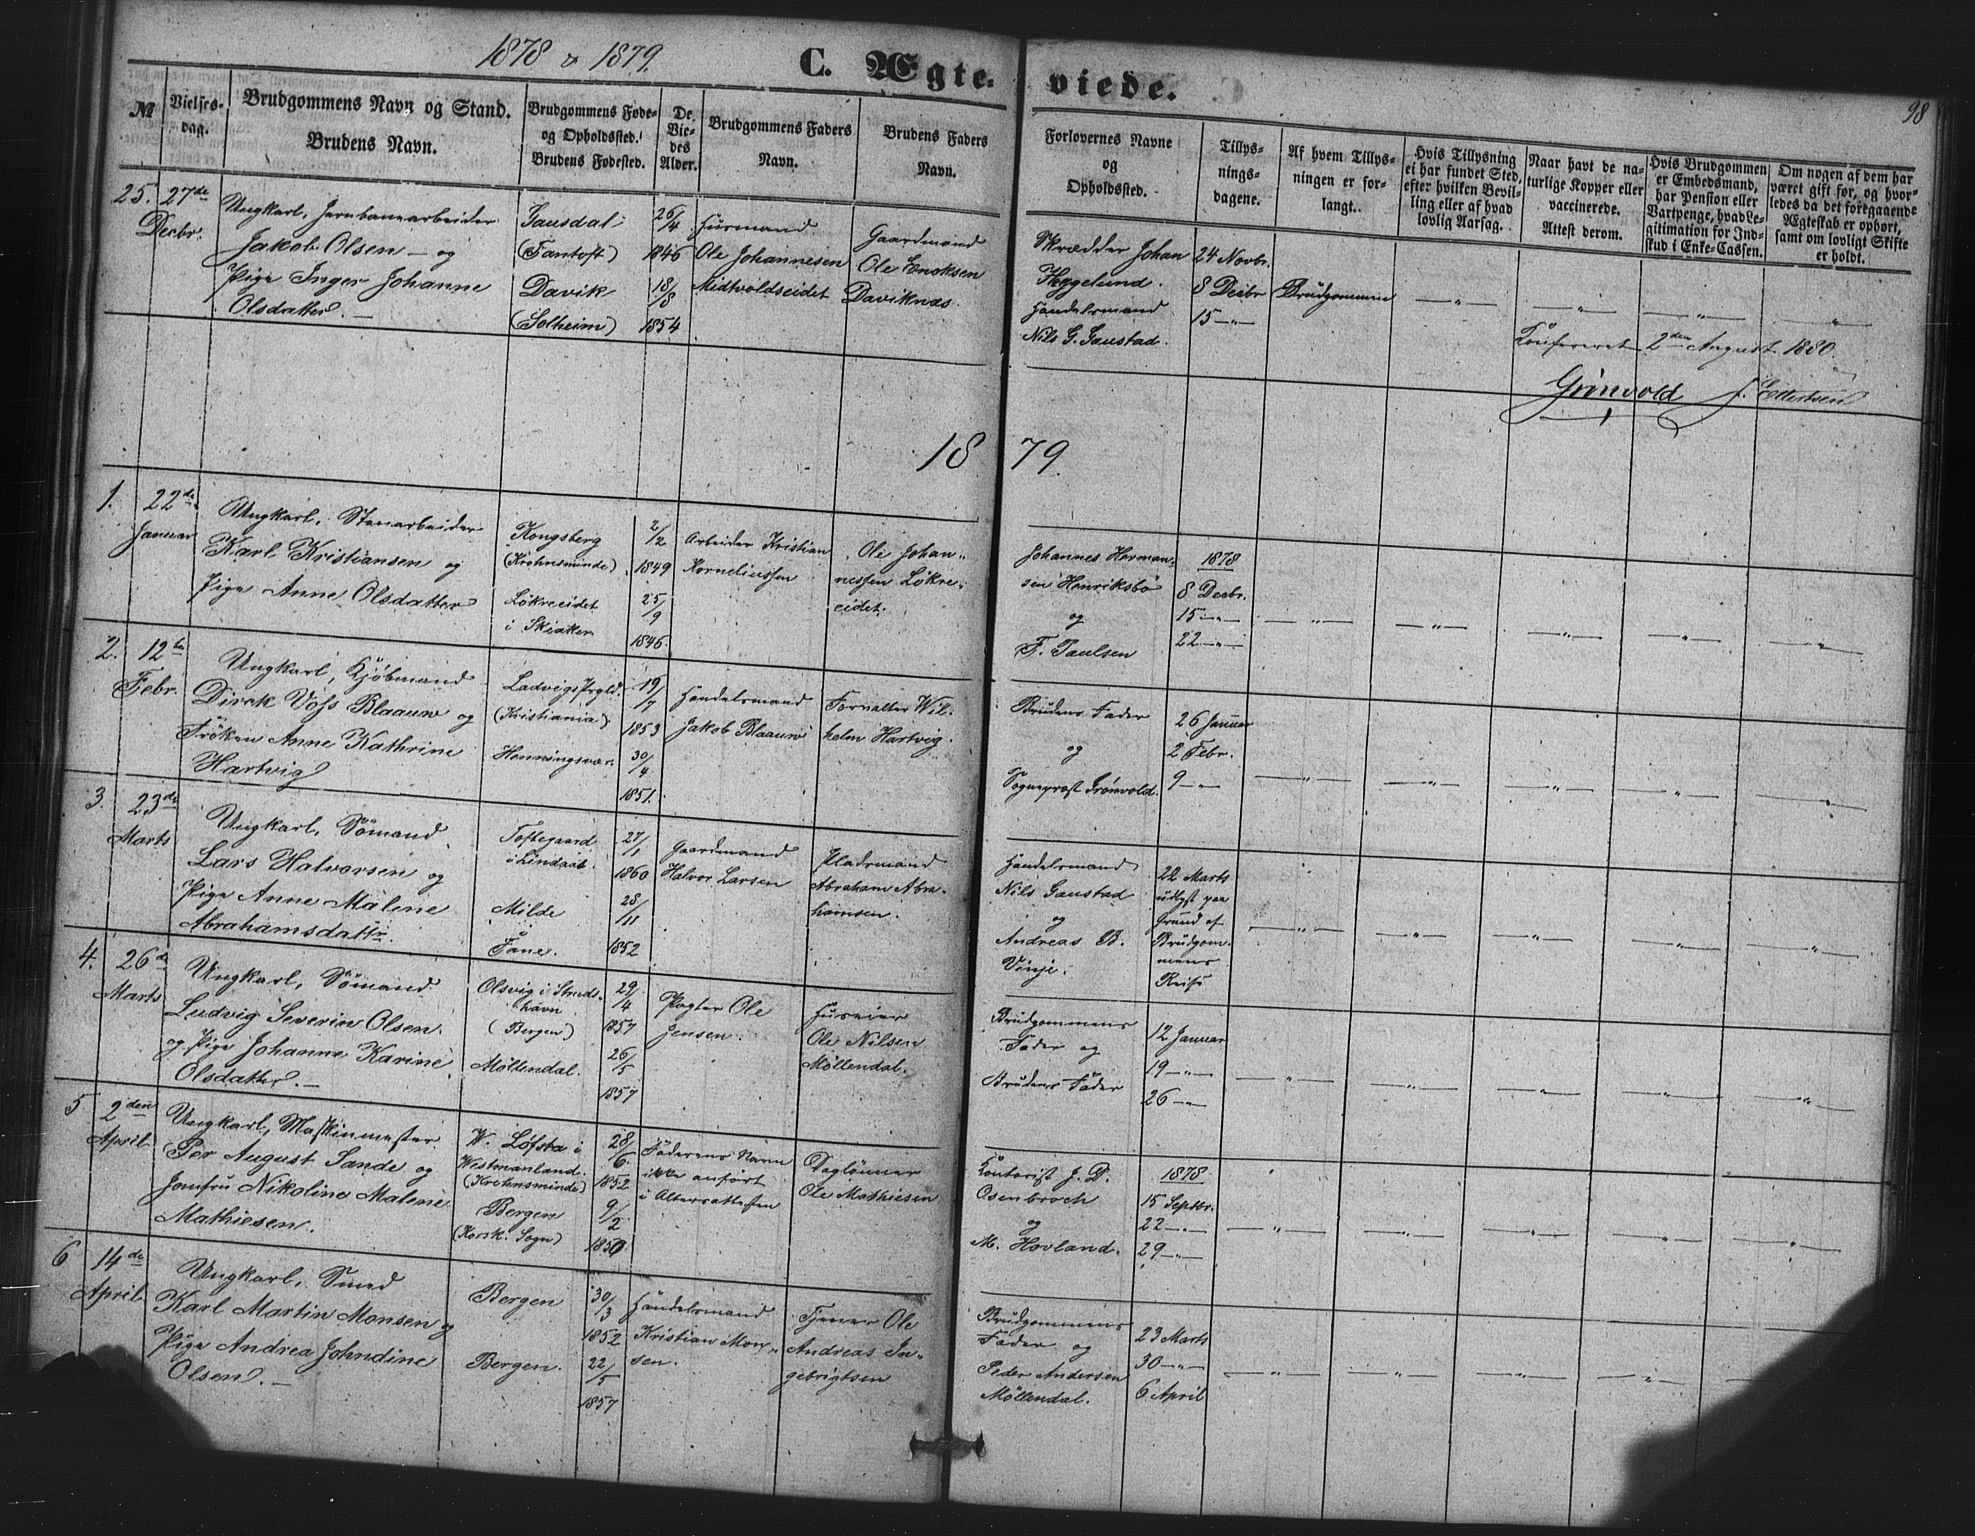 1878 & 1879.
C. Ægte-
viede.
98
№
Vielses-
dag.
Brudgommens Navn og Stand.
Brudens Navn.
Brudgommens Føde-
og Opholdssted.
Brudens Fødested.
De
Vie-
des
Alder.
Brudgommens Faders
Navn.
Brudens Faders
Navn.
Forlovernes Navne
og
Opholdssted.
Tillys-
nings-
dagene.
Af hvem Tillys-
ningen er for-
langt.
Hvis Tillysning
ei har fundet Sted,
efter hvilken Bevil-
ling eller af hvad
lovlig Aarsag.
Naar havt de na-
turlige Kopper eller
vaccinerede.
Attest derom.
Hvis Brudgommen
er Embedsmand,
har Pension eller
Vartpenge, hvad Le-
gitimation for Ind-
skud i Enke-Cassen.
Om nogen af dem har
været gift før, og hvor-
ledes da det foregaaende
Ægteskab er ophørt,
samt om lovligt Skifte
er holdt.
25.
27de
Decbr.
Ungkarl, Jernbanearbeider
Jakob Olsen — og
Pige Inger Johanne
Olsdatter. —
Gausdal
(Fantoft)
Davik
(Solheim)
26/4
1846
18/8
1854
Husmand
Ole Johannesen
Midtvoldseidet
Gaardmand
Ole Enoksen
Daviknæs.
Skrædder Johan
Heggelund.
Handelsmand
Nils G. Gaustad.
24 Novbr.
8 Decbr
15 — "
Brudgommen
— " —
— " —
— " —
"
Konfereret 2den August 1880.
Grönvold
18
79.
1.
22de
Januar
Ungkarl, Stenarbeider
Karl Kristiansen og
Pige Anne Olsdatter
Kongsberg
(Krohnsminde)
Lökreeidet
i Skiaker
2/2
1849
25/9
1846.
Arbeider Kristian
Korneliussen
Ole Johan-
nessen Lökre-
eidet.
Johannes Herman-
sen Henriksbö
og
F. Paulsen
1878
8 Decbr.
15 — " —
22 — " —
— " —
— " —
— " —
— " —
— " —
2.
12te
Febr.
Ungkarl, Kjöbmand
Dirck Voss Blaauw og
Fröken Anne Kathrine
Hartvig
Ladvigs Prgld.
(Kristiania)
Henningsvær.
19/7
1853
30/4
1851.
Handelsmand
Jakob Blaauw
Forvalter Wil-
helm Hartvig.
Brudens Fader
og
Sogneprest Grönvold.
26 Januar
2 Febr.
9 — " —
— " —
— " —
— " —
— " —
— " —
3.
23de
Marts
Ungkarl, Sömand
Lars Halvorsen og
Pige Anne Malene
Abrahamsdattr.
Toftegaard
i Lindaas.
Milde
Fane.
27/1
1860
28/11
1852
Gaardmand
Halvor Larsen
Pladsmand
Abraham Abra-
hamsen.
Handelsmand
Nils Gaustad
og
Andreas B.
Vinje.
22 Marts
udlyst paa
Grund af
Brudgom-
mens
Reise
— " —
— " —
— " —
— " —
— " —
4.
26de
Marts
Ungkarl, Sömand
Ludvig Severin Olsen.
og Pige Johanne Karine
Olsdatter. —
Olsvig i Struds-
havn
(Bergen)
Möllendal.
29/4
1857
26/5
1857
Pagter Ole
Jensen.
Huseier
Ole Nilsen
Möllendal.
Brudgommens
Fader og
Brudens Fader
12 Januar
19 — " —
26 — " —
— " —
— " —
— " —
— " —
— " —
5
2den
April
Ungkarl, Maskinmester
Per August Sande og
Jomfru Nikoline Malene
Mathiesen.
W. Löfsta i
Westmanland.
(Krohnsminde)
Bergen
(Korsk. Sogn)
28/6
1852
9/2
1850
Faderens Navn
ikke anført
i Altersattesten
Daglönner
Ole Mathiesen
Kontorist J. D.
Osenbroch
og
M. Hovland.
1878
15 Septbr.
22 — " —
29 — " —
— " —
— " —
— " —
— " —
— " —
6
14de
April
Ungkarl, Smed
Karl Martin Monsen og
Pige Andrea Johndine
Olsen. —
Bergen
Bergen.
30/3
1852
22/5
1857
Handelsmand
Kristian Mon-
sen.
Tjener Ole
Andreas In-
gebrigtsen
Brudgommens
Fader og
Peder Andersen
Möllendal.
23 Marts
30 — " —
6 April
— " —
— " —
— " —
— " —
— " —